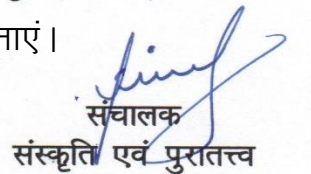 नाएं ।
संचालक
संस्कृति एवं पुरातत्त्व